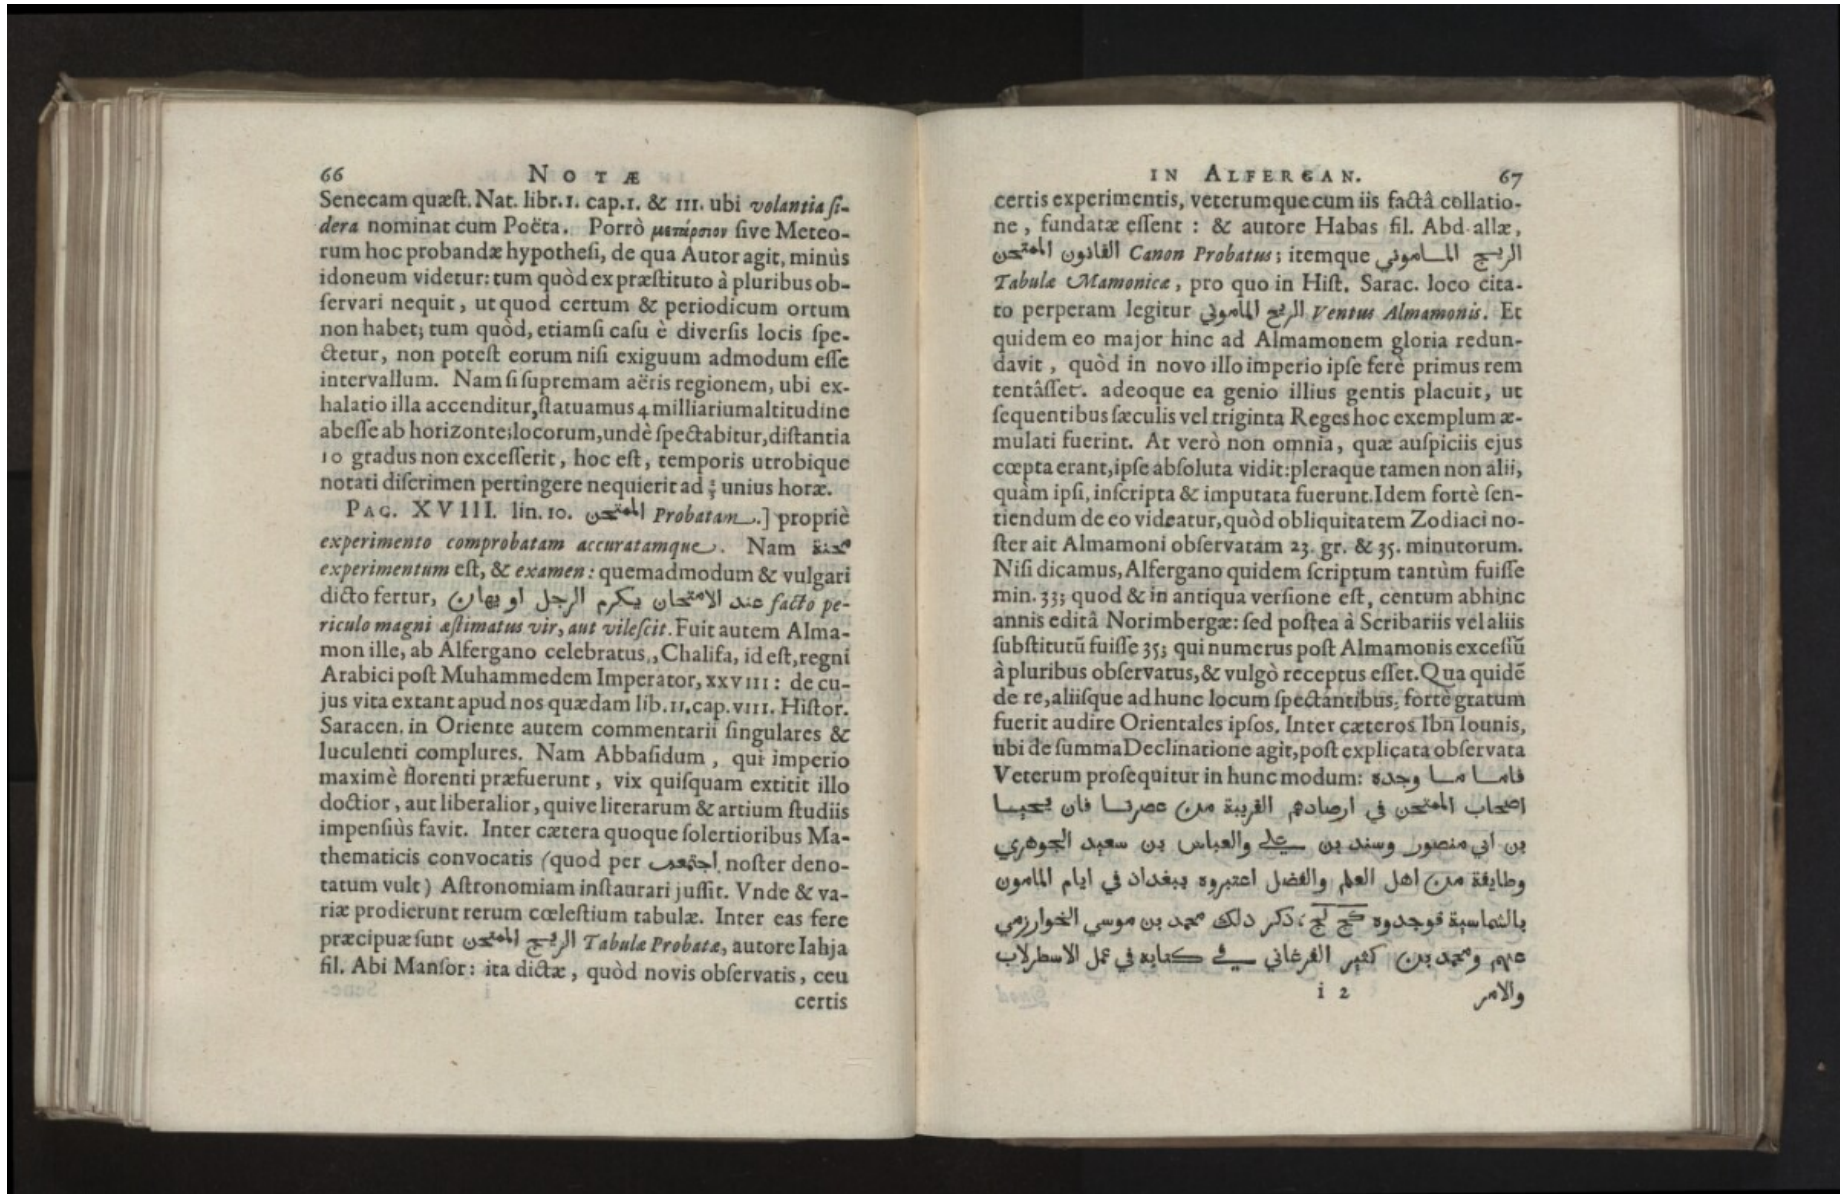 66 NOTÆ
Senecam quæſt. Nat. libr. I. cap. I. & III. ubi volantia ſi-
dera nominat cum Poëta. Porrò μετάρσιον ſive Meteo-
rum hoc probandæ hypotheſi, de qua Autor agit, minùs
idoneum videtur: tum quòd ex præſtituto à pluribus ob-
ſervari nequit, ut quod certum & periodicum ortum
non habet; tum quòd, etiamſi caſu è diverſis locis ſpe-
ctetur, non poteſt eorum niſi exiguum admodum eſſe
intervallum. Nam ſi ſupremam aëris regionem, ubi ex-
halatio illa accenditur, ſtatuamus 4 milliarium altitudine
abeſſe ab horizonte; locorum, undè ſpectabitur, diſtantia
10 gradus non exceſſerit, hoc eſt, temporis utrobique
notati diſcrimen pertingere nequierit ad unius horæ.
PAG. XVIII. lin. 10. الممتحن Probatam.] propriè
experimento comprobatam accuratamque. Nam محنة
experimentum eſt, & examen: quemadmodum & vulgari
dicto fertur, عند الامتحان يكرم الرجل او يهان facto pe-
riculo magni æſtimatus vir, aut vileſcit. Fuit autem Alma-
mon ille, ab Alfergano celebratus, Chalifa, id eſt, regni
Arabici poſt Muhammedem Imperator, XXVIII: de cu-
jus vita extant apud nos quædam lib. II. cap. VIII. Hiſtor.
Saracen. in Oriente autem commentarii ſingulares &
luculenti complures. Nam Abbaſidum, qui imperio
maximè florenti præfuerunt, vix quiſquam extitit illo
doctior, aut liberalior, quive literarum & artium ſtudiis
impenſiùs favit. Inter cætera quoque ſolertioribus Ma-
thematicis convocatis (quod per noſter deno-
tatum vult) Aſtronomiam inſtaurari juſſit. Vnde & va-
riæ prodierunt rerum cœleſtium tabulæ. Inter eas fere
præcipuæ ſunt الزيج الممتحن Tabulæ Probatæ, autore Iahja
fil. Abi Manſor: ita dictæ, quòd novis obſervatis, ceu
certis
IN ALFERGAN. 67
certis experimentis, veterumque cum iis factâ collatio-
ne, fundatæ eſſent: & autore Habas fil. Abd-allæ,
القانون الممتحن Canon Probatus; itemque الزيج المـاموني
Tabulæ Mamonicæ, pro quo in Hiſt. Sarac. loco cita-
to perperam legitur الريح الماموني Ventus Almamonis. Et
quidem eo major hinc ad Almamonem gloria redun-
davit, quòd in novo illo imperio ipſe ferè primus rem
tentâſſet. adeoque ea genio illius gentis placuit, ut
ſequentibus ſæculis vel triginta Reges hoc exemplum æ-
mulati fuerint. At verò non omnia, quæ auſpiciis ejus
cœpta erant, ipſe abſoluta vidit: pleraque tamen non alii,
quàm ipſi, inſcripta & imputata fuerunt. Idem fortè ſen-
tiendum de eo videatur, quòd obliquitatem Zodiaci no-
ſter ait Almamoni obſervatam 23. gr. & 35. minutorum.
Niſi dicamus, Alfergano quidem ſcriptum tantùm fuiſſe
min. 33; quod & in antiqua verſione eſt, centum abhinc
annis editâ Norimbergæ: ſed poſtea à Scribariis vel aliis
ſubſtitutũ fuiſſe 35; qui numerus poſt Almamonis exceſſũ
à pluribus obſervatus, & vulgò receptus eſſet. Qua quidẽ
de re, aliiſque ad hunc locum ſpectantibus, fortè gratum
fuerit audire Orientales ipſos. Inter cæteros Ibn Iounis,
ubi de ſumma Declinatione agit, poſt explicata obſervata
Veterum proſequitur in hunc modum: فامـا مـا وجده
اصحاب الممتحن في ارصادهم القريبة من عصرنـا فان يحييـا
بن ابي منصور وسند بن علي والعباس بن سعيد الجوهري
وطايفة من اهل العلم والفضل اعتبروه ببغداد في ايام المامون
بالشماسية فوجدوه كج لج، ذكر دلك محمد بن موسي الخوارزمي
عنهم ومحمد بن كثير الفرغاني في كتابه في عمل الاسطرلاب
i 2 والامر